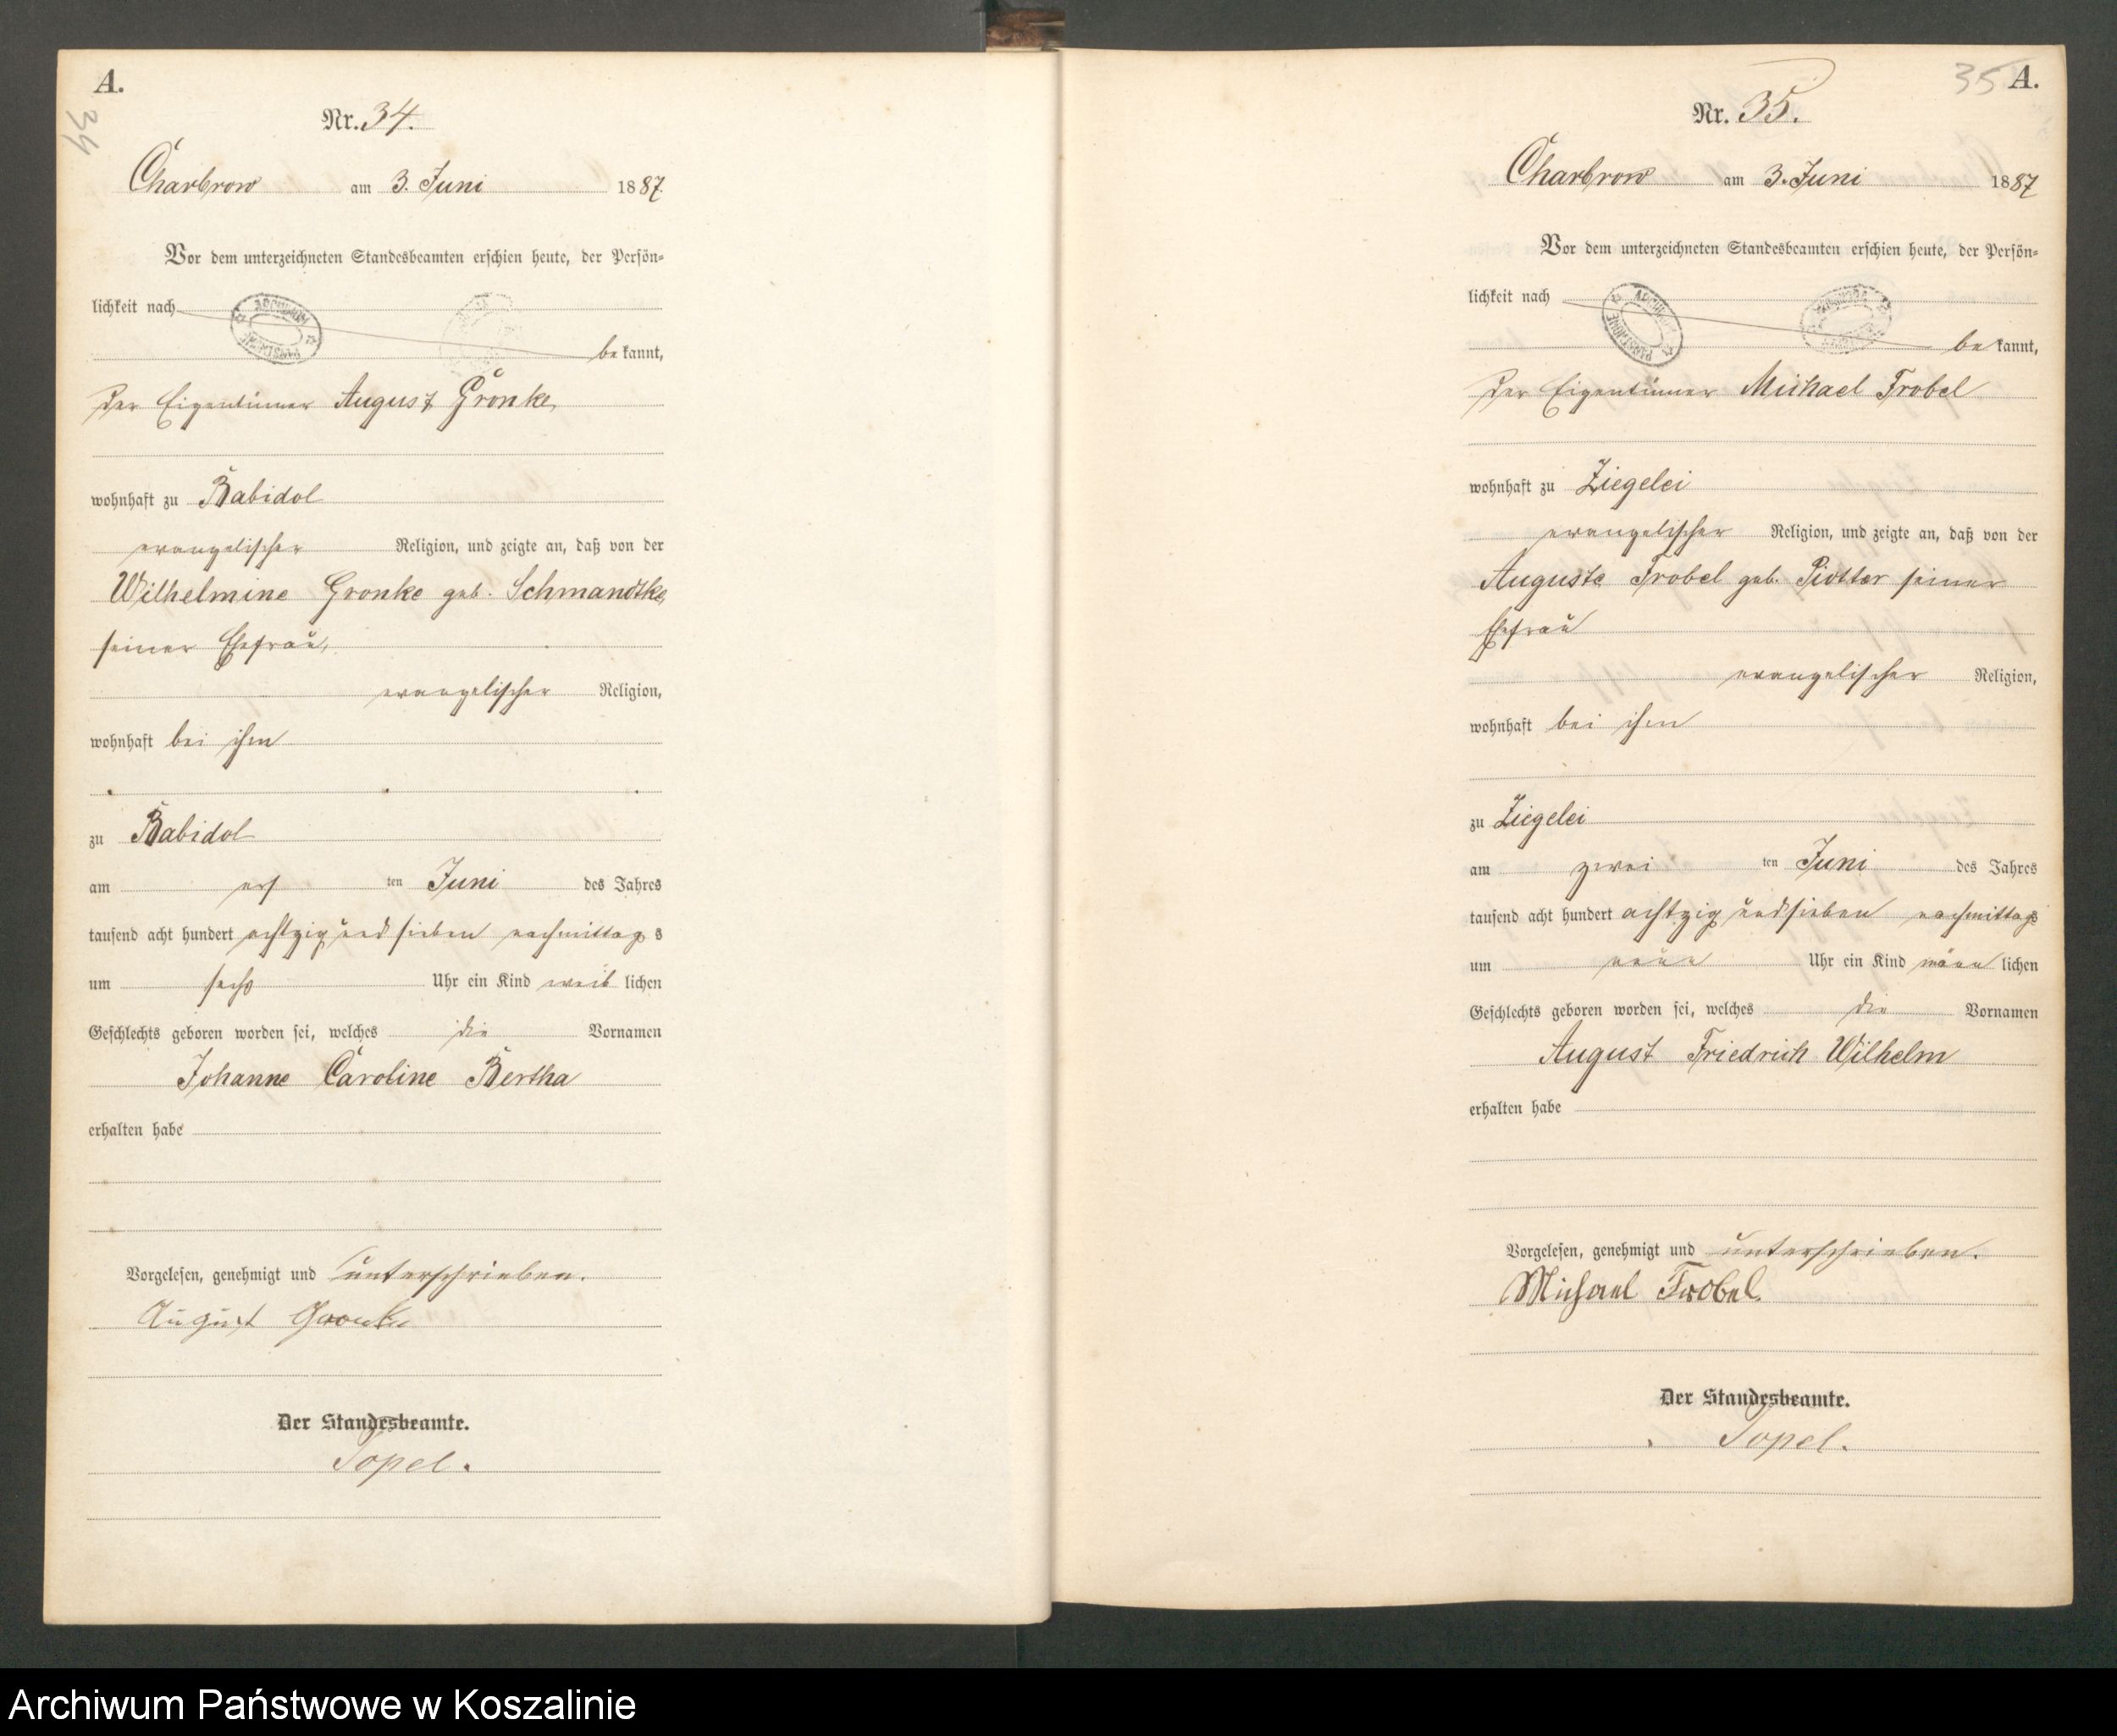 A.
34
Nr. 34.
Charbrow am 3. Juni 1887.
Vor dem unterzeichneten Standesbeamten erschien heute, der Persön-
lichkeit nach
be kannt,
der Eigentümer August Gronke,
wohnhaft zu Babidol
evangelischer Religion, und zeigte an, daß von der
Wilhelmine Gronke geb. Schmandtke,
seiner Ehefrau,
evangelischer Religion,
wohnhaft bei ihm
zu Babidol
am ers ten Juni des Jahres
tausend acht hundert achtzig und sieben nachmittag s
um sechs Uhr ein Kind weib lichen
Geschlechts geboren worden sei, welches die Vornamen
Johanne Caroline Bertha
erhalten habe
Vorgelesen, genehmigt und unterschrieben.
August Gronke
Der Standesbeamte.
Topel.
35 A.
Nr. 35.
Charbrow am 3. Juni 1887
Vor dem unterzeichneten Standesbeamten erschien heute, der Persön-
lichkeit nach
be kannt,
der Eigentümer Michael Trobel
wohnhaft zu Ziegelei
evangelischer Religion, und zeigte an, daß von der
Auguste Trobel geb. Piotter seiner
Ehefrau
evangelischer Religion,
wohnhaft bei ihm
zu Ziegelei
am zwei ten Juni des Jahres
tausend acht hundert achtzig und sieben nachmittags
um neun Uhr ein Kind männ lichen
Geschlechts geboren worden sei, welches die Vornamen
August Friedrich Wilhelm
erhalten habe
Vorgelesen, genehmigt und unterschrieben.
Michael Trobel.
Der Standesbeamte.
Topel.
Archiwum Państwowe w Koszalinie